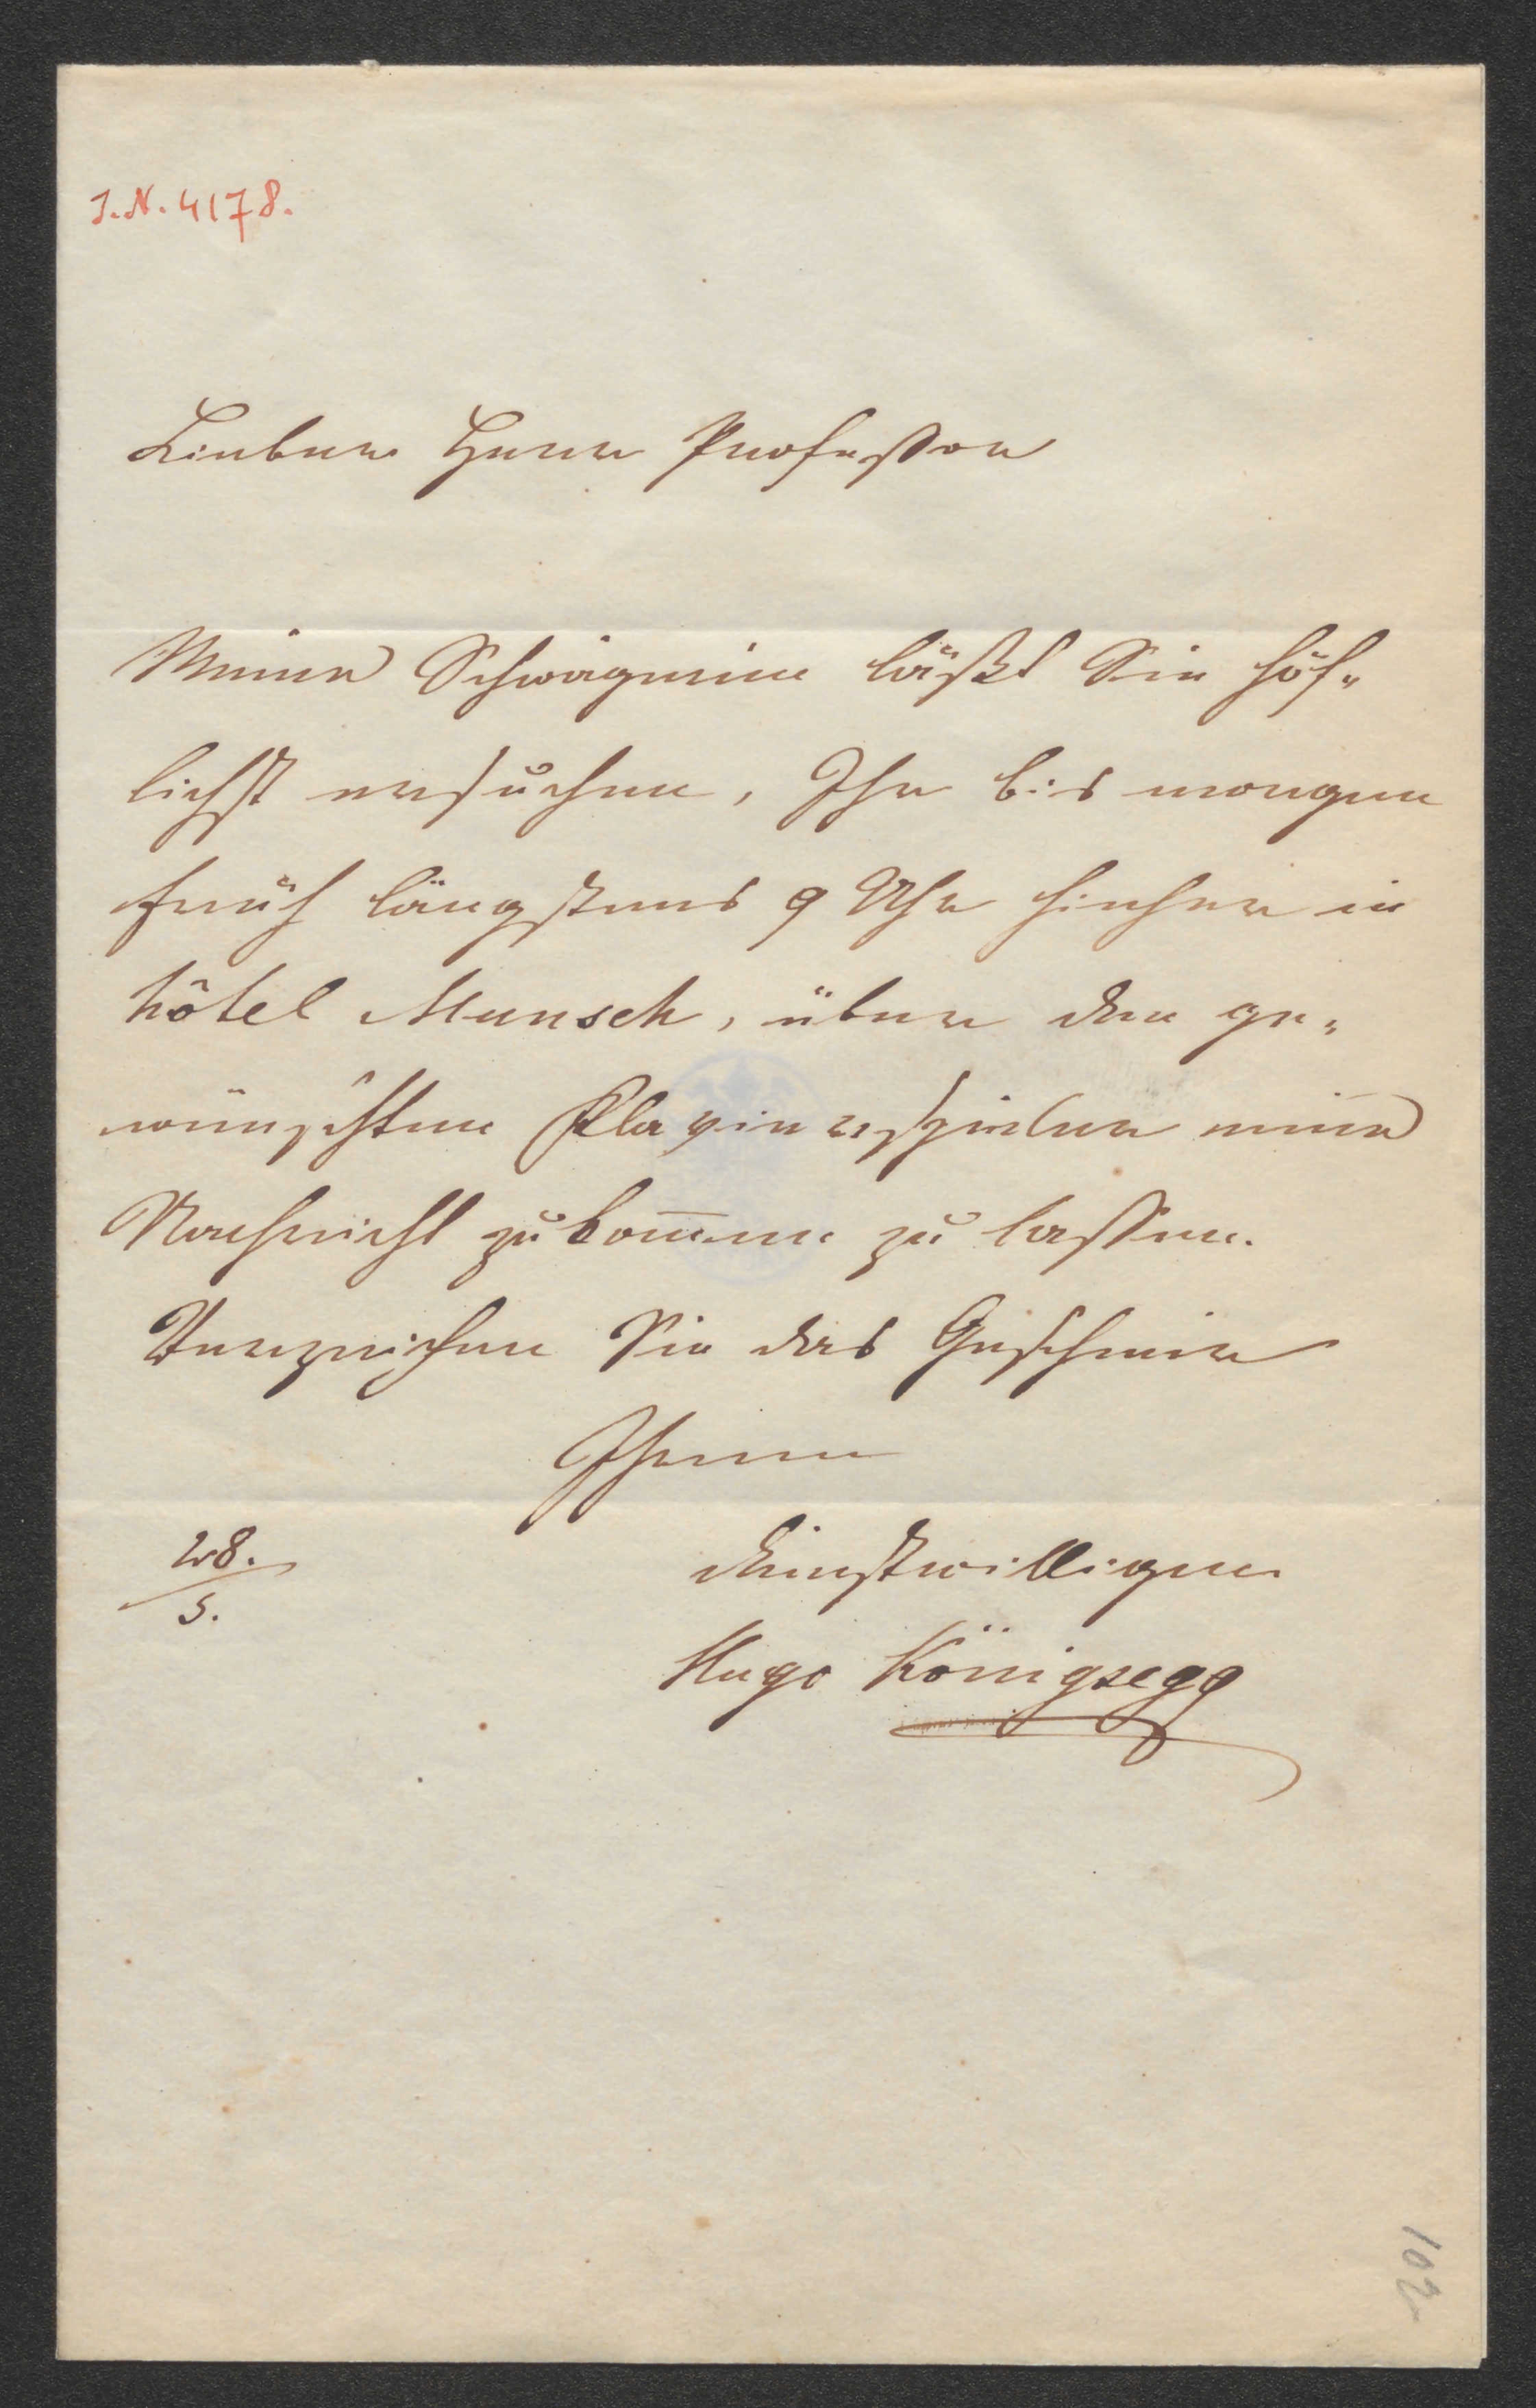 J.N. 4178.
Lieber Herr Professor
Meine Schwägerin läßt Sie höf-
lichst ersuchen, Ihr bis morgen
früh längstens 9 Uhr hieher in
hôtel Munsch, über den ge-
wünschten Klavierspieler eine
Nachricht zukom̅en zu lassen.
Verzeihen Sie das Geschmier
Ihrem
dienstwilligen
28.
5.
Hugo Königsegg
102